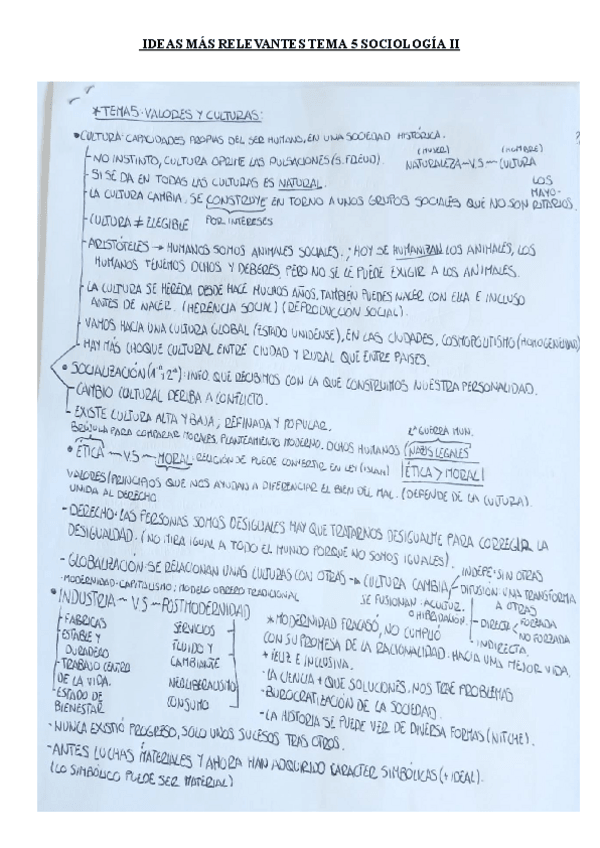 IDEAS MÁS RELEVANTES TEMA 5 SOCIOLOGÍA II
* TEMA 5: VALORES Y CULTURAS:
• CULTURA: CAPACIDADES PROPIAS DEL SER HUMANO, EN UNA SOCIEDAD HISTÓRICA.
(MUJER) (HOMBRE)
- NO INSTINTO, CULTURA OPRIME LAS PULSACIONES (S. FREUD). NATURALEZA ~ V.S ~ CULTURA
- SI SE DA EN TODAS LAS CULTURAS ES NATURAL.
- LA CULTURA CAMBIA, SE CONSTRUYE EN TORNO A UNOS GRUPOS SOCIALES QUE NO SON LOS MAYORITARIOS.
POR INTERESES
- CULTURA ≠ ELEGIBLE
- ARISTÓTELES → HUMANOS SOMOS ANIMALES SOCIALES.; HOY SE HUMANIZAN LOS ANIMALES, LOS
HUMANOS TENEMOS DCHOS Y DEBERES, PERO NO SE LE PUEDE EXIGIR A LOS ANIMALES.
- LA CULTURA SE HEREDA DESDE HACE MUCHOS AÑOS. TAMBIÉN PUEDES NACER CON ELLA E INCLUSO
ANTES DE NACER. (HERENCIA SOCIAL) (REPRODUCCIÓN SOCIAL).
- VAMOS HACIA UNA CULTURA GLOBAL (ESTADO UNIDENSE), EN LAS CIUDADES, COSMOPOLITISMO (HOMOGENEIDAD)
- HAY MÁS CHOQUE CULTURAL ENTRE CIUDAD Y RURAL QUE ENTRE PAISES.
• SOCIALIZACIÓN (1ª; 2ª): INFO. QUE RECIBIMOS CON LA QUE CONSTRUIMOS NUESTRA PERSONALIDAD.
- CAMBIO CULTURAL DERIBA A CONFLICTO.
- EXISTE CULTURA ALTA Y BAJA; REFINADA Y POPULAR.
2ª GUERRA MUN.
BRÚJULA PARA COMPARAR MORALES. PLANTEAMIENTO MODERNO. DCHOS HUMANOS (NAZIS LEGALES
• ÉTICA ~ V.S ~ MORAL: RELIGIÓN SE PUEDE CONVERTIR EN LEY (ISLAM) |ÉTICA > MORAL|
VALORES/PRINCIPIOS QUE NOS AYUDAN A DIFERENCIAR EL BIEN DEL MAL. (DEPENDE DE LA CULTURA).
UNIDA AL DERECHO
- DERECHO: LAS PERSONAS SOMOS DESIGUALES HAY QUE TRATARNOS DESIGUALME PARA CORREGIR LA
DESIGUALDAD. (NO MIRA IGUAL A TODO EL MUNDO PORQUE NO SOMOS IGUALES).
- GLOBALIZACIÓN: SE RELACIONAN UNAS CULTURAS CON OTRAS → CULTURA CAMBIA
INDEPE: SIN OTRAS
DIFUSIÓN: UNA TRANSFORMA A OTRAS
SE FUSIONAN: ACULTUR. O HIBRIDACIÓN.
DIRECTA FORZADA
NO FORZADA
INDIRECTA.
- MODERNIDAD: CAPITALISMO; MODELO OBRERO TRADICIONAL
• INDUSTRIA ~ V.S ~ POSTMODERNIDAD
- FABRICAS SERVICIOS
ESTABLE Y DURADERO FLUIDO Y CAMBIANTE
- TRABAJO CENTRO DE LA VIDA. NEOLIBERALISMO
- ESTADO DE BIENESTAR CONSUMO
* MODERNIDAD FRACASÓ, NO CUMPLIÓ
CON SU PROMESA DE LA RACIONALIDAD. HACIA UNA MEJOR VIDA,
+ FELIZ E INCLUSIVA.
- LA CIENCIA + QUE SOLUCIONES, NOS TRAE PROBLEMAS
- BUROCRATIZACIÓN DE LA SOCIEDAD.
- LA HISTORIA SE PUEDE VER DE DIVERSA FORMAS (NITCHE).
- NUNCA EXISTIÓ PROGRESO, SOLO UNOS SUCESOS TRAS OTROS.
- ANTES LUCHAS MATERIALES Y AHORA HAN ADQUIRIDO CARACTER SIMBÓLICAS (+ IDEAL).
(LO SIMBÓLICO PUEDE SER MATERIAL)